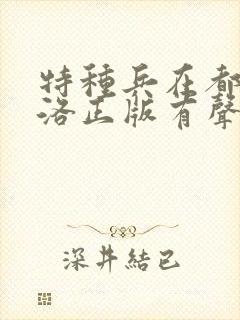 特種兵在都
洛正版有聲
深井結已